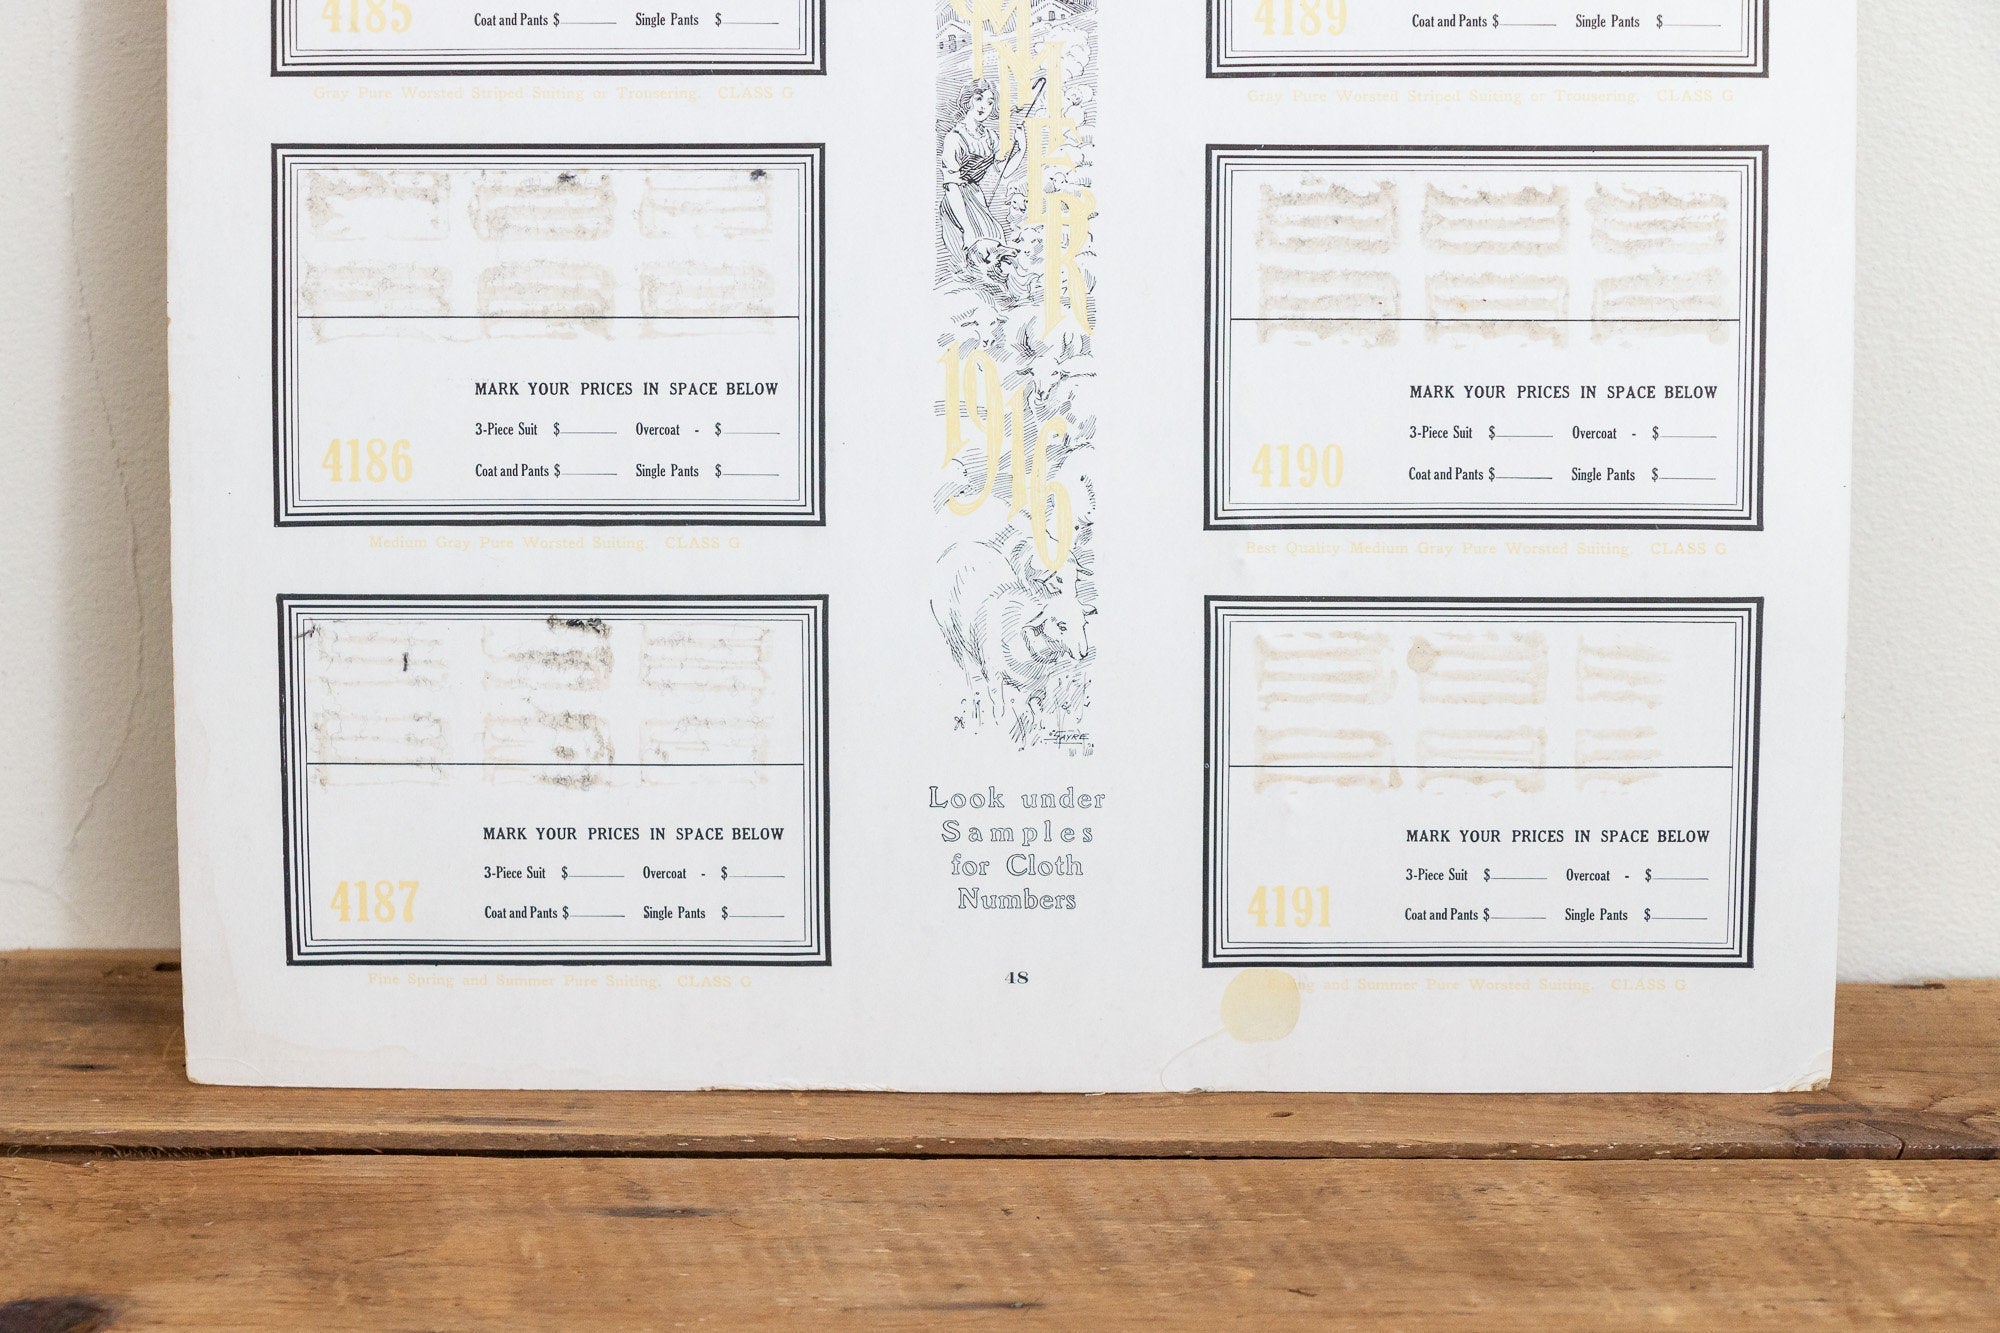 4185
Coat and Pants $ Single Pants $
Gray Pure Worsted Striped Suiting or Trousering. CLASS G
MARK YOUR PRICES IN SPACE BELOW
3-Piece Suit $ Overcoat - $
4186
Coat and Pants $ Single Pants $
Medium Gray Pure Worsted Suiting. CLASS G
MARK YOUR PRICES IN SPACE BELOW
3-Piece Suit $ Overcoat - $
4187
Coat and Pants $ Single Pants $
Fine Spring and Summer Pure Suiting. CLASS G
MMER
1916
SAYRE
Look under
Samples
for Cloth
Numbers
48
4189
Coat and Pants $ Single Pants $
Gray Pure Worsted Striped Suiting or Trousering. CLASS G
MARK YOUR PRICES IN SPACE BELOW
3-Piece Suit $ Overcoat - $
4190
Coat and Pants $ Single Pants $
Best Quality Medium Gray Pure Worsted Suiting. CLASS G
MARK YOUR PRICES IN SPACE BELOW
3-Piece Suit $ Overcoat - $
4191
Coat and Pants $ Single Pants $
Spring and Summer Pure Worsted Suiting. CLASS G